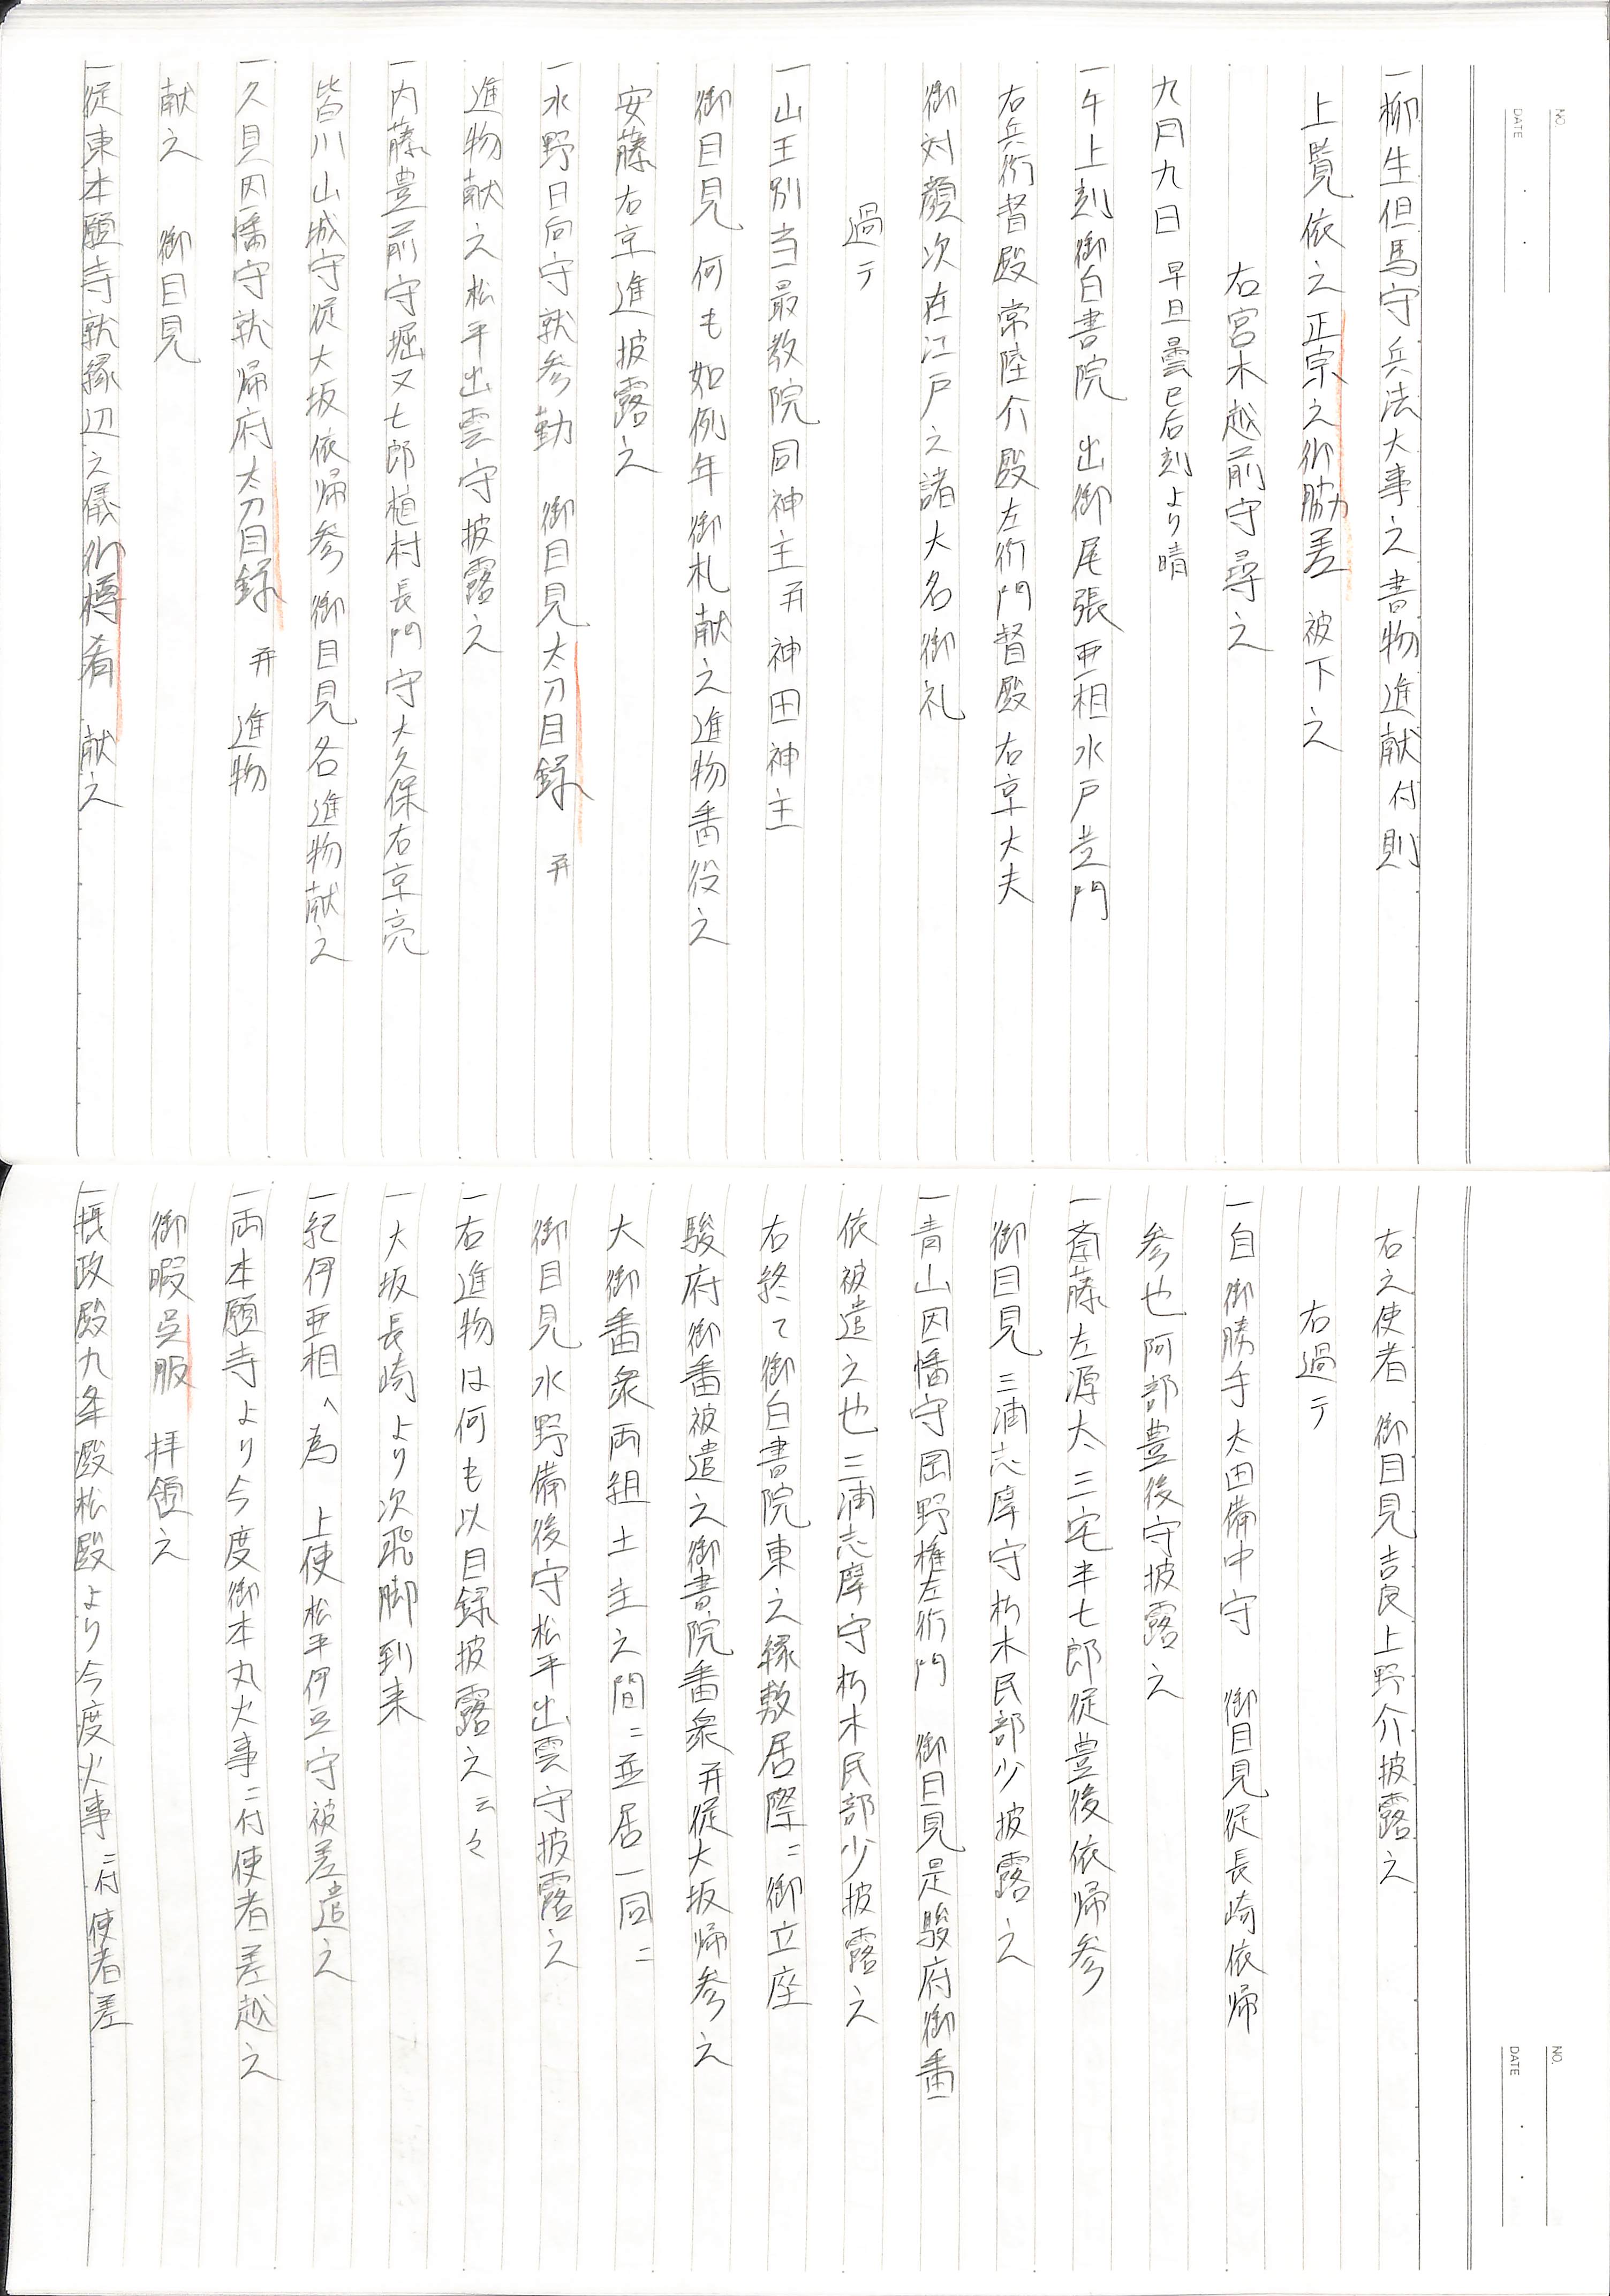 NO.
DATE
一柳生但馬守兵法大事之書物進献付則
上覧依之正宗之御脇差 被下之
右宮木越前守尋之
九月九日 早旦曇巳后刻より晴
一午上刻御白書院 出御尾張亜相水戸黄門
右兵衛督殿常陸介殿左衛門督殿右京大夫
御対顔次在江戸之諸大名御礼
過テ
一山王別当最教院同神主并神田神主
御目見 何も如例年御札献之進物番役之
安藤右京進披露之
一水野日向守就参勤 御目見太刀目録 并
進物献之松平出雲守披露之
一内藤豊前守堀又七郎植村長門守大久保右京亮
皆川山城守従大坂依帰参御目見各進物献之
一久貝因幡守就帰府太刀目録 并 進物
献之 御目見
一従東本願寺就縁辺之儀御樽肴 献之
NO.
DATE
右之使者 御目見吉良上野介披露之
右過テ
一自御勝手太田備中守 御目見従長崎依帰
参也阿部豊後守披露之
一斎藤左源太三宅半七郎従豊後依帰参
御目見三浦志摩守朽木民部少披露之
一青山因幡守岡野権左衛門 御目見是駿府御番
依被遣之也三浦志摩守朽木民部少披露之
右終て御白書院東之縁敷居際ニ御立座
駿府御番被遣之御書院番衆并従大坂帰参之
大御番衆両組土主之間ニ並居一同ニ
御目見水野備後守松平出雲守披露之
一右進物は何も以目録披露之云々
一大坂長崎より次飛脚到来
一紀伊亜相へ為 上使松平伊豆守被差遣之
一両本願寺より今度御本丸火事ニ付使者差越之
御暇呉服 拝領之
一摂政殿九条殿松殿より今度火事ニ付使者差